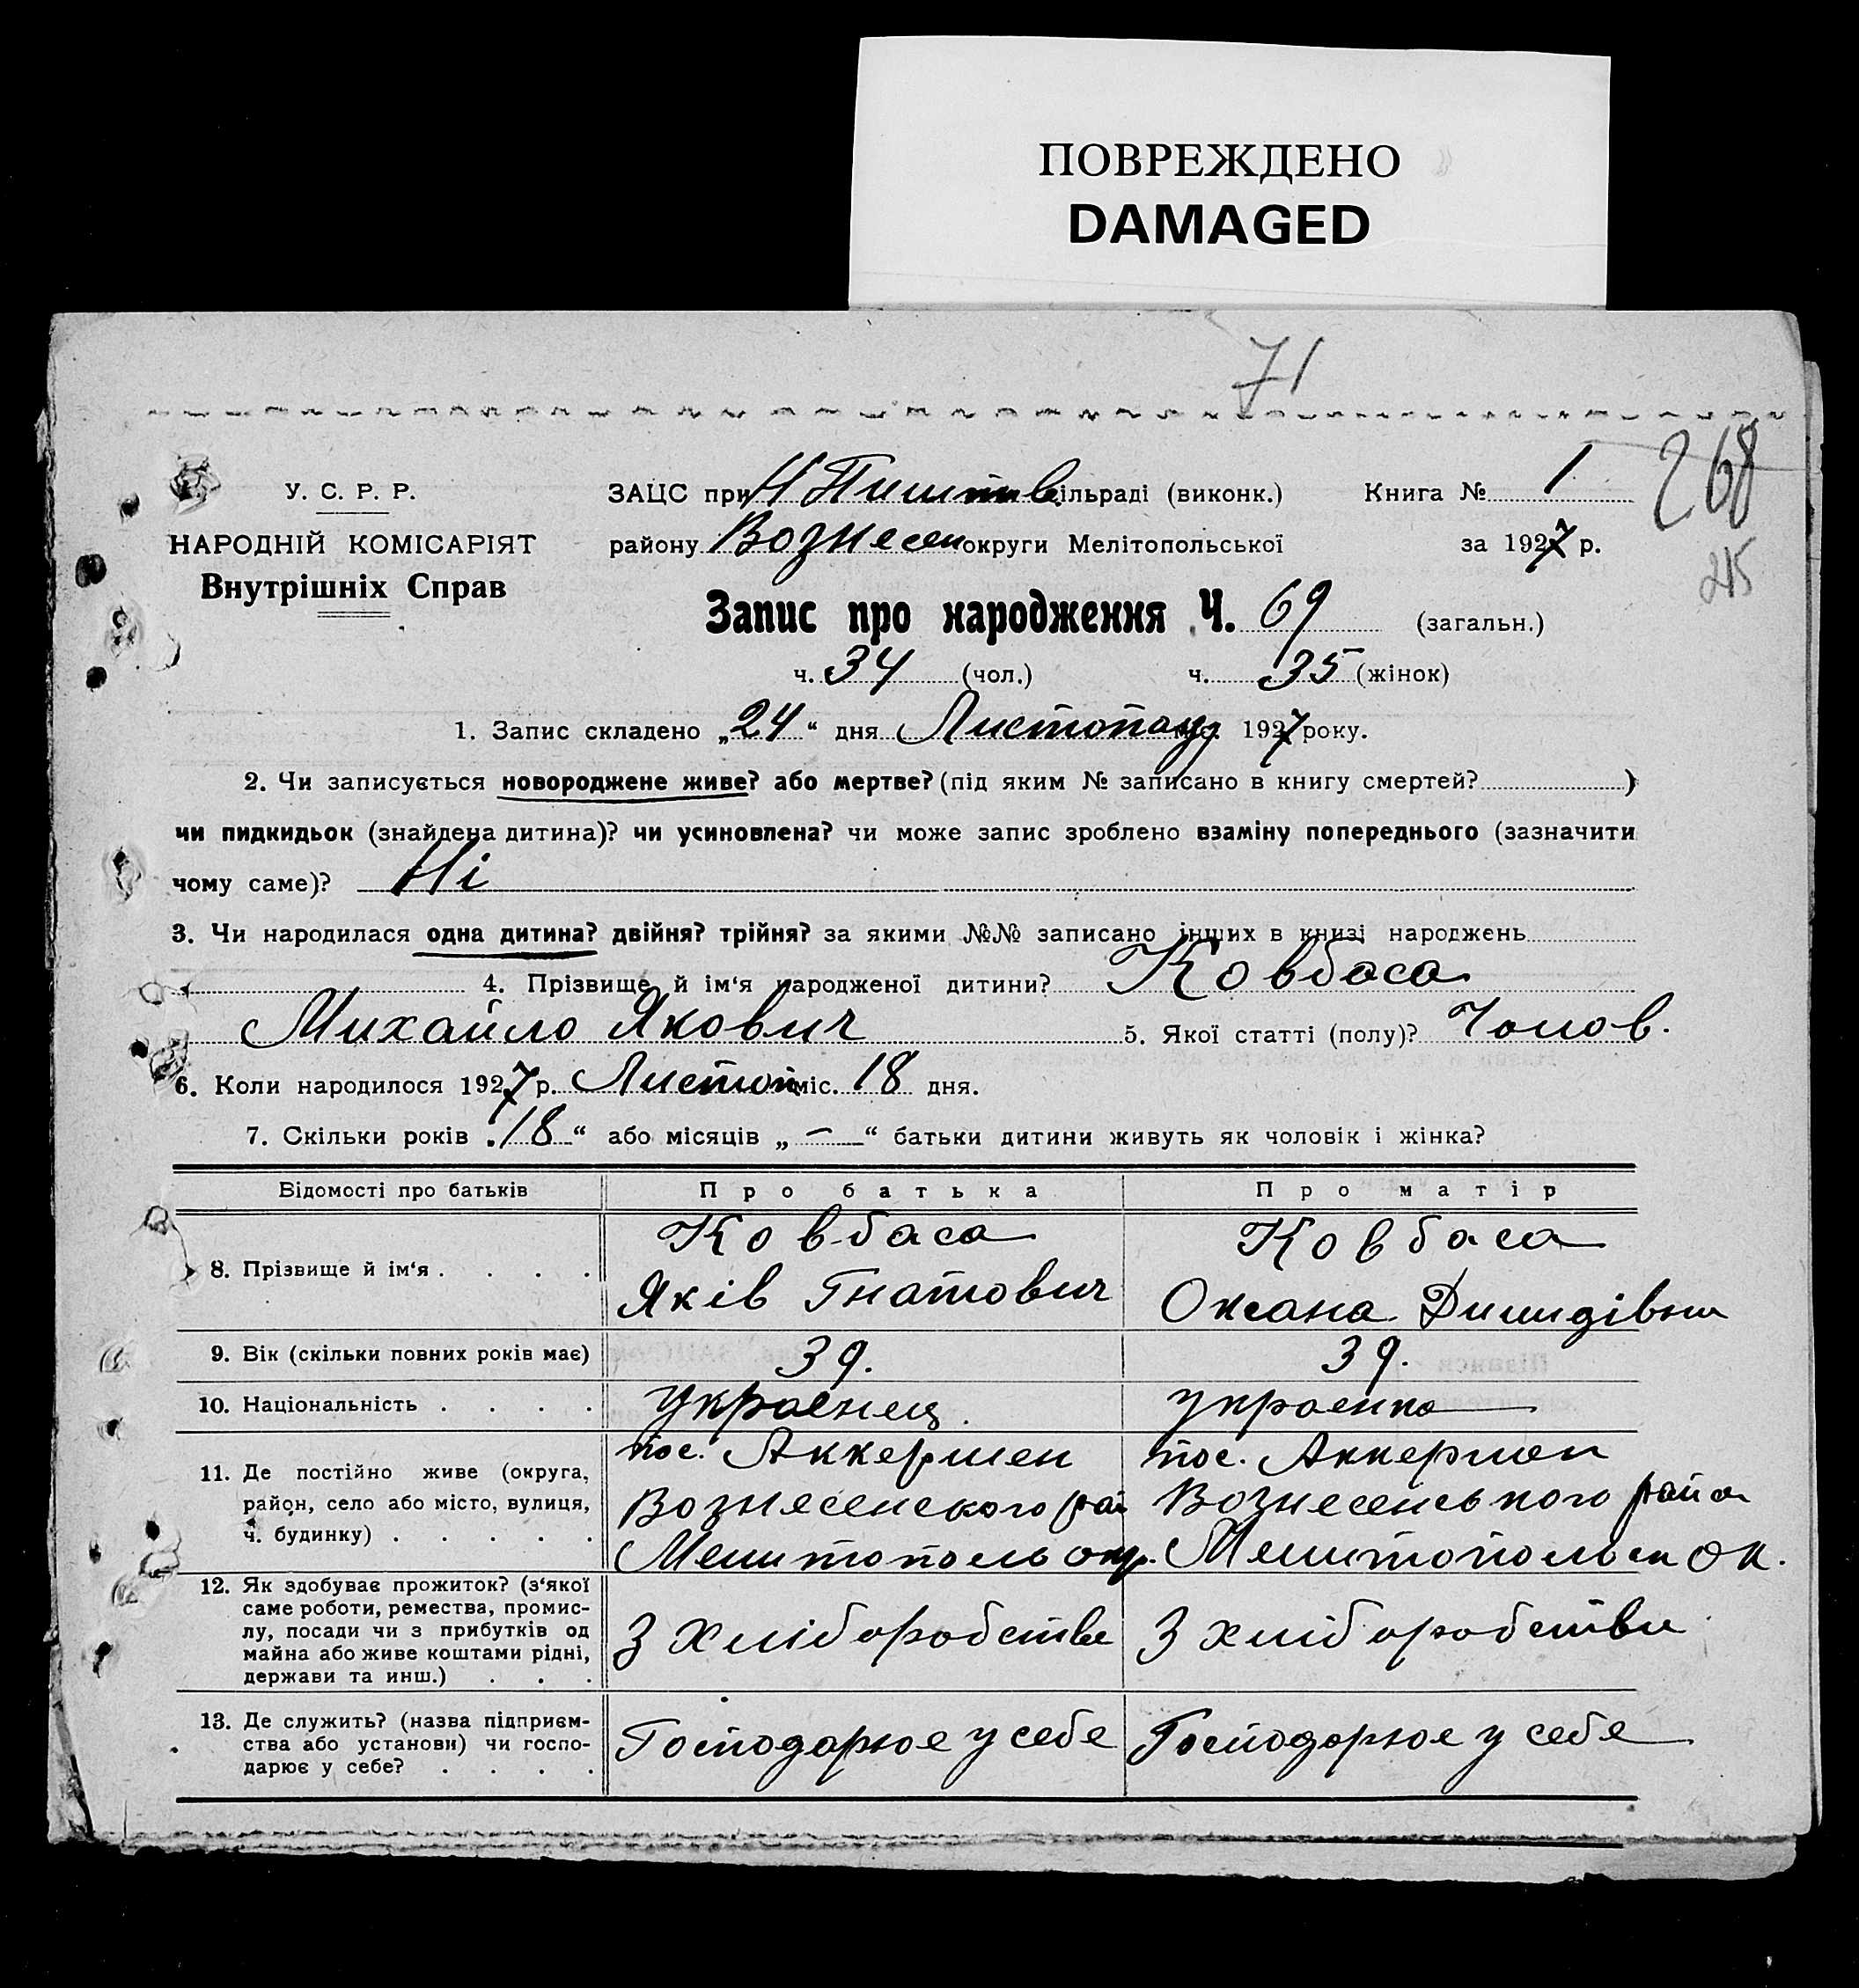 ПОВРЕЖДЕНО
DAMAGED
71
268
У. С. Р. Р.
НАРОДНІЙ КОМІСАРІЯТ
Внутрішніх Справ
215
ЗАЦС при Н сільраді (виконк.) Книга № 1
району Вознесен округи Мелітопольської за 1927 р.
Запис про народження Ч. 69 (загальн.)
ч. 34 (чол.) ч. 35 (жінок)
1. Запис складено „24“ дня Листопаду 1927 року.
2. Чи записується новороджене живе? або мертве? (під яким № записано в книгу смертей? )
чи пидкидьок (знайдена дитина)? чи усиновлена? чи може запис зроблено взаміну попереднього (зазначити
чому саме)? Ні
3. Чи народилася одна дитина? двійня? трійня? за якими №№ записано інших в книзі народжень
4. Прізвище й ім'я народженої дитини? Ковбаса
Михайло Якович 5. Якої статті (полу)? Чолов.
6. Коли народилося 1927 р. Листоп міс. 18 дня.
7. Скільки років „18“ або місяців „—“ батьки дитини живуть як чоловік і жінка?
Відомості про батьків Про батька Про матір
8. Прізвище й ім'я . . . . Ковбаса Яків Гнатович Ковбаса Оксана
9. Вік (скільки повних років має) 39. 39.
10. Національність . . . . Украенец. Украенка
11. Де постійно живе (округа, район, село або місто, вулиця, ч. будинку) . . . . . пос. Аккермен Вознесенского рай Мелитополь окр. пос. Аккермен Вознесенського район Мелитопольск ок.
12. Як здобуває прожиток? (з'якої саме роботи, ремества, промислу, посади чи з прибутків од майна або живе коштами рідні, держави та инш.) . . . З хліборобства З хліборобства
13. Де служить? (назва підприємства або установи) чи господарює у себе? . . . . Господарює у себе Господарює у себе